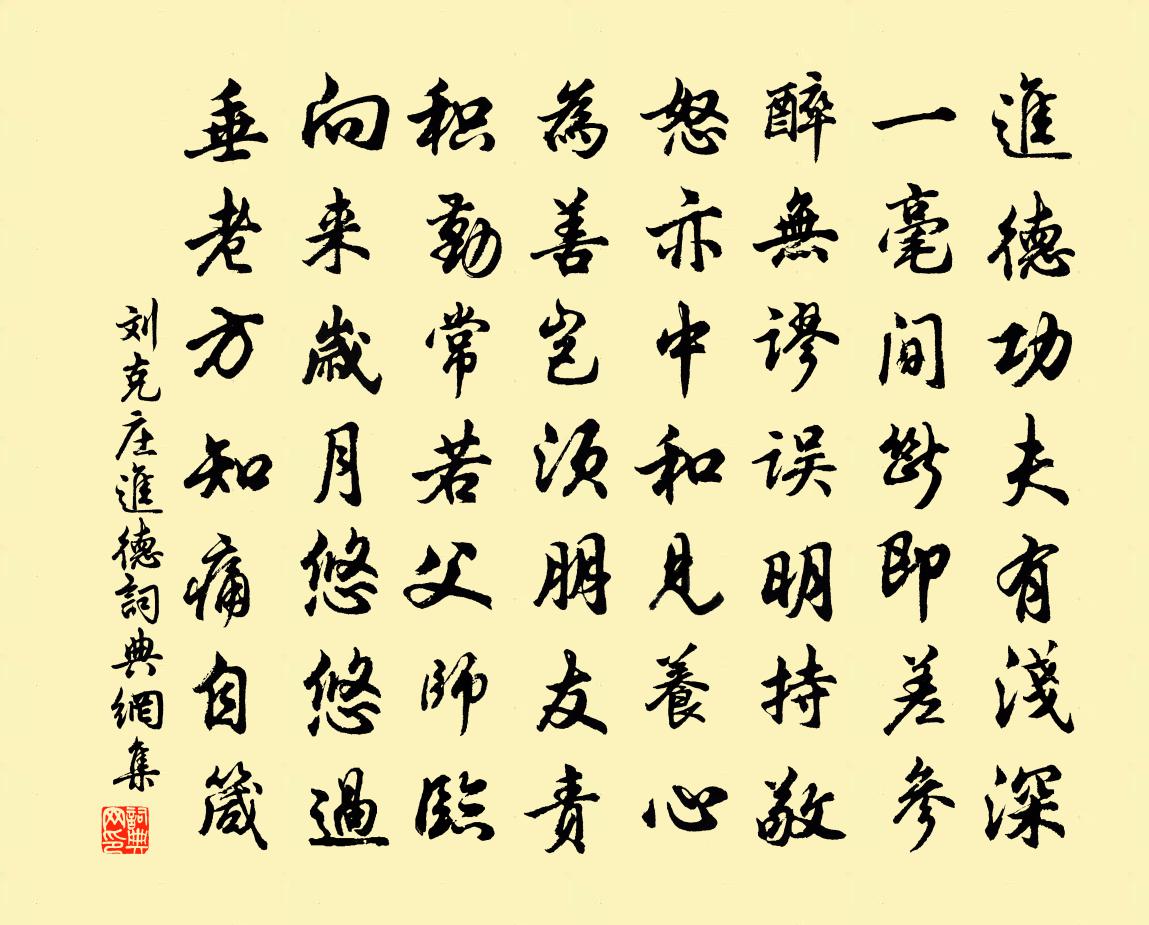 進德功夫有淺深
一毫間斷即差參
醉無謬误明持敬
怒亦中和見養心
為善豈须朋友責
积勤常若父師臨
向来歲月悠悠過
垂老方知痛自箴
刘克庄進德詞典網集
詞典
网印